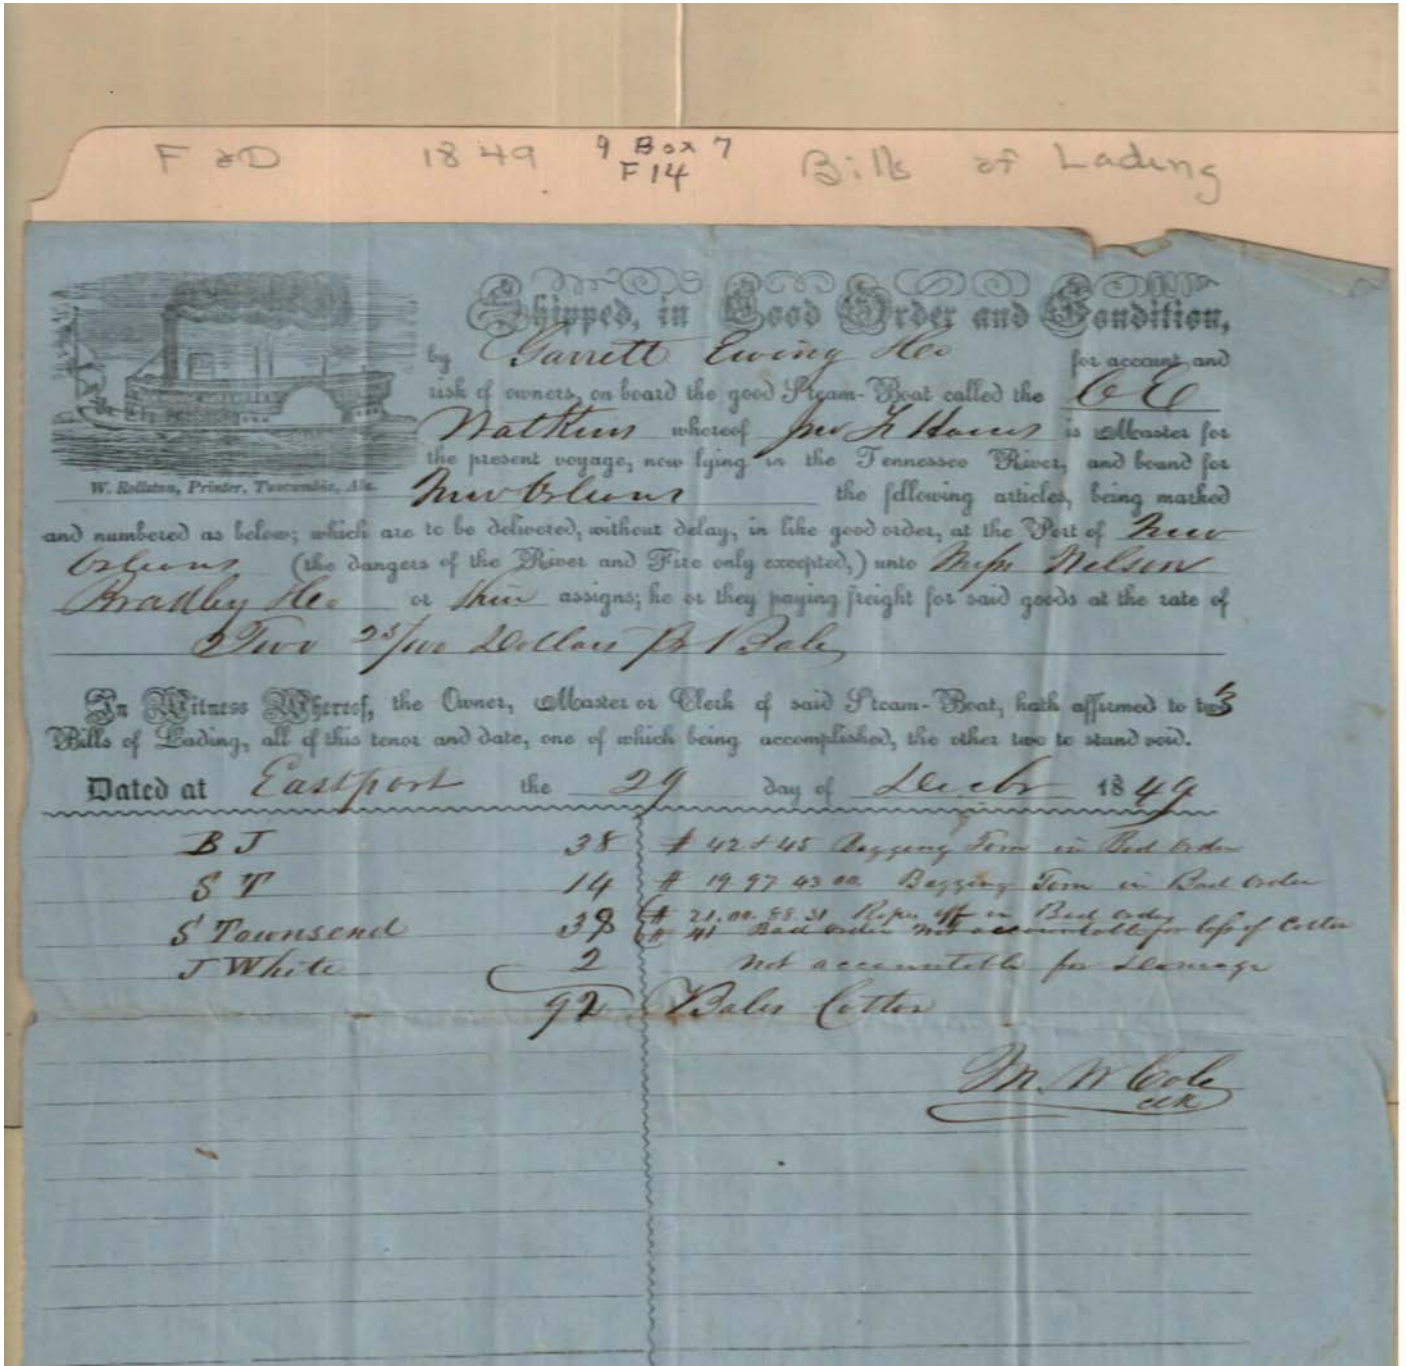 F & D 1849 9 Box 7 Bills of Lading
F 14
Shipped, in Good Order and Condition,
by Garrett Ewing & Co for account and
risk of owners, on board the good Steam-Boat called the C C
Watkins whereof Jno is Master for
the present voyage, now lying in the Tennessee River, and bound for
W. Rollston, Printer, Tuscumbia, Ala. New Orleans the following articles, being marked
and numbered as below; which are to be delivered, without delay, in like good order, at the Port of New
Orleans (the dangers of the River and Fire only excepted,) unto Mess Nelson
Bradley & Co or their assigns; he or they paying freight for said goods at the rate of
Two 25/100 Dollars Pr Bale
In Witness Whereof, the Owner, Master or Clerk of said Steam-Boat, hath affirmed to 3
Bills of Lading, all of this tenor and date, one of which being accomplished, the other two to stand void.
Dated at Eastport the 29 day of Decbr 1849
B J 38 # 42 & 45 Bagging Torn in Bad Order
S T 14 # 19 97 43 00 Bagging Torn in Bad Order
S Townsend 38 # 21.00.88.31 Ropes off in Bad Order
# 41 Bad order Not accountable for loss of Cotton
J White 2 Not accountable for Damage
92 Bales Cotton
M. W Cole
Clk